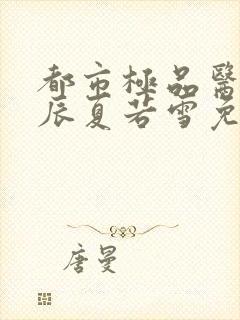 都市極品醫
辰夏若雪免
唐曼